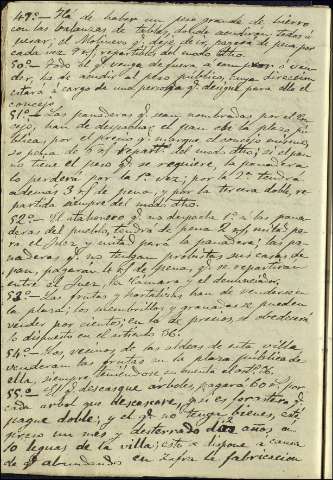 49º.- Há de haber un peso grande de hierro
con las balanzas de tablas, donde acudiran todos á
pesar; el Molinero q. deje de ir, pagará de pena por
cada vez 9 rs. repartables del modo dtho.
50º.- Todo el q. venga de fuera á comprar ó ven-
der, ha de acudir al peso público, cuya direccion
estará á cargo de una persona q. designe para ello el
concejo.
51º.- Las panaderas q. sean nombradas por el Con-
cejo, han de despachar el pan en la plaza pú-
blica, por el precio q. marque el concejo mismo,
so pena de 3 rs. repartos del modo dtho; si el pan
no tiene el peso q. se requiere, la panadera
lo perderá por la 1ª vez; por la 2ª tendrá
además 3 rs. de pena, y por la tercera doble, re-
partida siempre del modo dtho.
52º.- El atahonero q. no despache 1º á las pana-
deras del pueblo, tendrá de pena 2 rs. mitad pa-
ra el Juez y mitad para la panadera; las pa-
naderas q. no tengan provistas sus casas de
pan, pagaran 4 rs. de pena, q. se repartiran
entre el Juez, la Cámara y el denunciador.
53º.- Las frutas y hortalizas han de venderse en
la plaza; los membrillos y granadas se pueden
vender por cientos; en los precios, se obedecerá
lo dispuesto en el artículo 36.
54º.- Los, vecinos de las aldeas de esta villa
venderan las frutas en la plaza pública de
ella, siempre teniéndose en cuenta el art.º 36.
55º.- El q. descasque árboles, pagará 600 rs. por
cada árbol que descascare, y si es forastero q.
pague doble; y el q. no tenga bienes, esté
preso un mes y desterrado diez años en
10 leguas de la villa; esto se dispone á causa
de q. abundando en Zafra la fabricacion